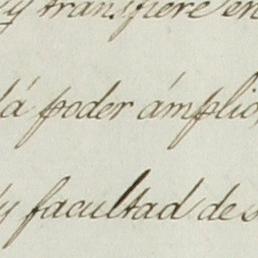 y transfiere en
dá poder ámplio,
y facultad de s